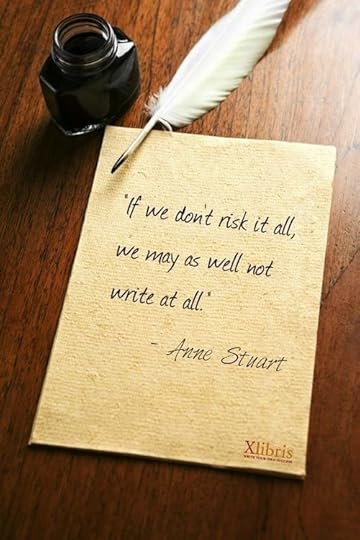 "If we don't risk it all,
we may as well not
write at all."
- Anne Stuart
Xlibris